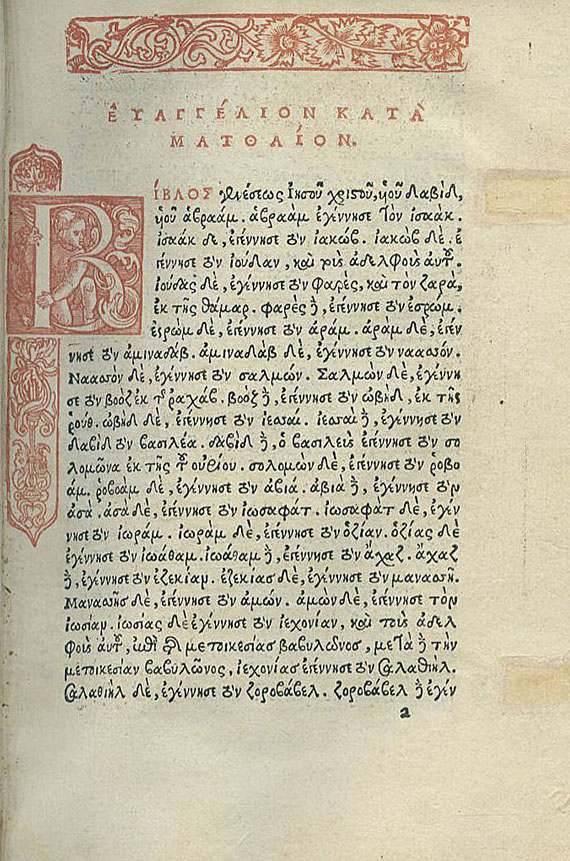 ΕΥΑΓΓΈΛΙΟΝ ΚΑΤᾺ
ΜΑΤΘΑΊΟΝ.
ΒΊΒΛΟΣ γενέσεως Ἰησοῦ χριστοῦ, ὑοῦ Δαβὶδ,
ὑοῦ ἀβραάμ. ἀβραὰμ ἐγέννησε τὸν ἰσαάκ.
ἰσαὰκ δε, ἐγέννησε τὸν ἰακώβ. ἰακὼβ δὲ. ἐ
γέννησε τὸν ἰούδαν, καὶ τοὺς ἀδελφοὺς αὐτοῦ.
ἰούδας δὲ, ἐγέννησε τὸν φαρὲς, καὶ τὸν ζαρὰ,
ἐκ τῆς θάμαρ. φαρὲς δὲ, ἐγέννησε τὸν ἐσρώμ.
ἐσρὼμ δὲ, ἐγέννησε τὸν ἀράμ. ἀρὰμ δὲ, ἐγέν
νησε τὸν ἀμιναδάβ. ἀμιναδὰβ δὲ, ἐγέννησε τὸν ναασσόν.
Ναασσὸν δὲ, ἐγέννησε τὸν σαλμών. Σαλμὼν δὲ, ἐγέννη
σε τὸν βοὸζ ἐκ τῆς ραχάβ. βοὸζ δὲ, ἐγέννησε τὸν ὠβὴδ, ἐκ τῆς
ῥούθ. ὠβὴδ δὲ, ἐγέννησε τὸν ἰεσσαί. ἰεσσαὶ δὲ, ἐγέννησε τὸν
Δαβὶδ τὸν βασιλέα. δαβὶδ δὲ, ὁ βασιλεὺς ἐγέννησε τὸν σο
λομῶνα ἐκ τῆς τοῦ οὐρίου. σολομὼν δὲ, ἐγέννησε τὸν ῥοβο
άμ. ῥοβοὰμ δὲ, ἐγέννησε τὸν ἀβιά. ἀβιὰ δὲ, ἐγέννησε τὸν
ἀσά. ἀσὰ δὲ, ἐγέννησε τὸν ἰωσαφάτ. ἰωσαφὰτ δὲ, ἐγέν
νησε τὸν ἰωράμ. ἰωρὰμ δὲ, ἐγέννησε τὸν ὀζίαν. ὀζίας δὲ
ἐγέννησε τὸν ἰωάθαμ. ἰωάθαμ δὲ, ἐγέννησε τὸν ἄχαζ. ἄχαζ
δὲ, ἐγέννησε τὸν ἐζεκίαμ. ἐζεκίας δὲ, ἐγέννησε τὸν μανασσῆ.
Μανασσῆς δὲ, ἐγέννησε τὸν ἀμών. ἀμὼν δὲ, ἐγέννησε τὸν
ἰωσίαν. ἰωσίας δὲ ἐγέννησε τὸν ἰεχονίαν, καὶ τοὺς ἀδελ
φοὺς αὐτοῦ, ἐπὶ τῆς μετοικεσίας βαβυλῶνος, μετὰ δὲ τὴν
μετοικεσίαν βαβυλῶνος, ἰεχονίας ἐγέννησε τὸν Σαλαθιήλ.
Σαλαθιὴλ δὲ, ἐγέννησε τὸν ζοροβάβελ. ζοροβάβελ δὲ ἐγέν
a